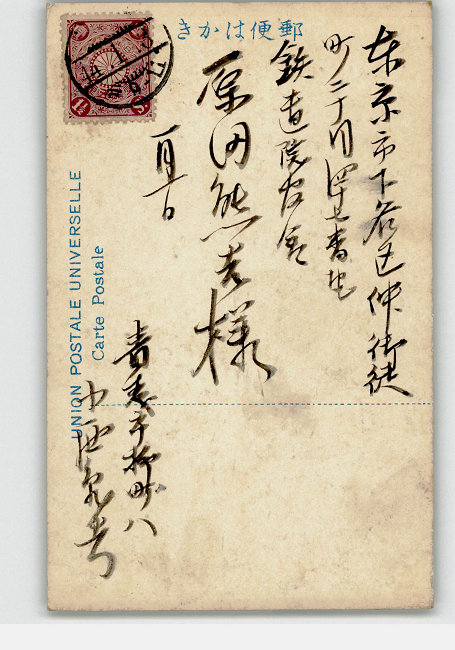 きかは便郵
東京市下谷区仲御徒
町二丁目四十七番地
鉄道院官舎
原田熊吉様
一月一日
青森市柳町八
小西
UNION POSTALE UNIVERSELLE
Carte Postale
1½ Sn